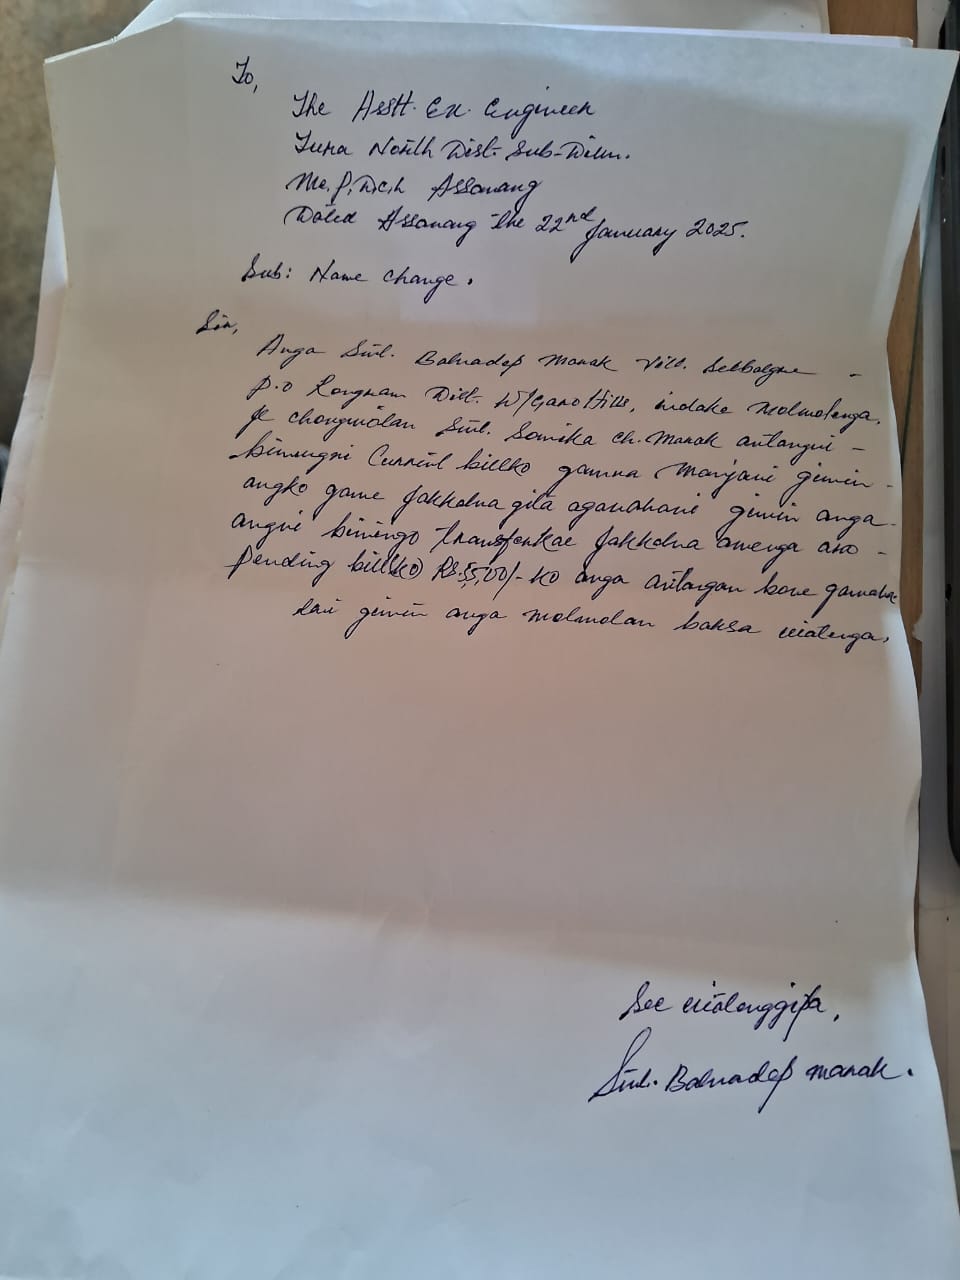 To,
The Asstt. Ex. Engineer
Tura North Dist. Sub-Divn.
Me.P.D.C.L Assanang
Dated Assanang the 22nd January 2025.
Sub: Name change.
Sir,
Anga Smt. Balnadep Marak Vill. -
P.O Rongram Dist. W/Garo Hills, indake molmolenga.
je chongmotan Smt. Sonika Ch. Marak antangni -
bimungni Current billko gamna manjani gimin -
angko game jakkalna gita aganahani gimin anga -
angni bimingo transferkae jakkalna amenga aro -
pending billko Rs. /- ko anga antangan bone gamaha
gimin anga molmolan baksa
See
Smt. Balnadep Marak.